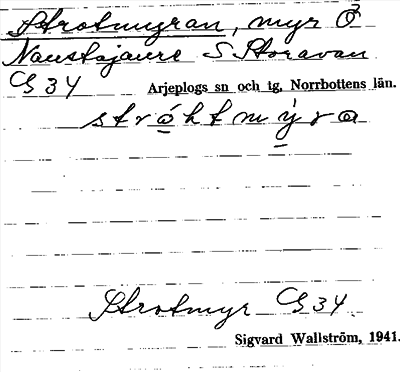 Strotmyran, myr Ö
Naustajaure S. Storavan
C834
Arjeplogs sn och tg, Norrbottens län.
stróhtmýra
Strotmyr C834
Sigvard Wallström, 1941.